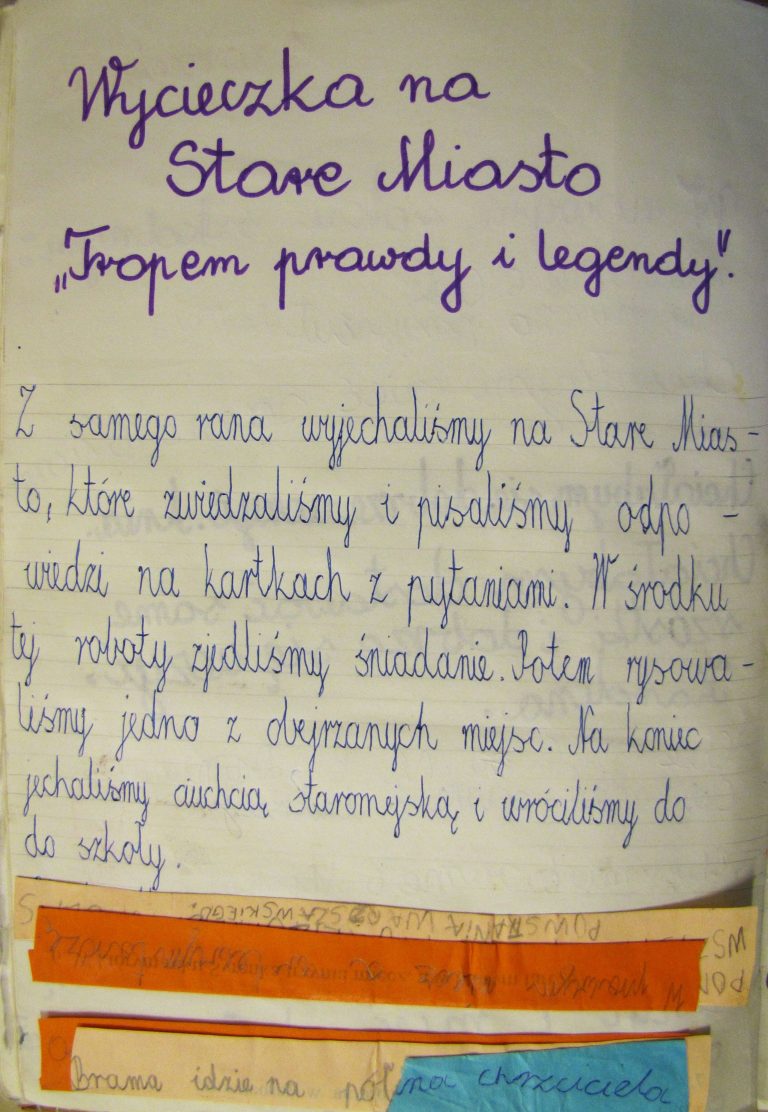 Wycieczka na
Stare Miasto
„Tropem prawdy i legendy".
Z samego rana wyjechaliśmy na Stare Mias-
to, które zwiedzaliśmy i pisaliśmy odpo-
wiedzi na kartkach z pytaniami. W środku
tej roboty zjedliśmy śniadanie. Potem rysowa-
liśmy jedno z obejrzanych miejsc. Na koniec
jechaliśmy ciuchcią staromejską i wróciliśmy do
do szkoły.
POWSTANIA WARSZAWSKIEGO?
Brama idzie na pół na chrzciciela